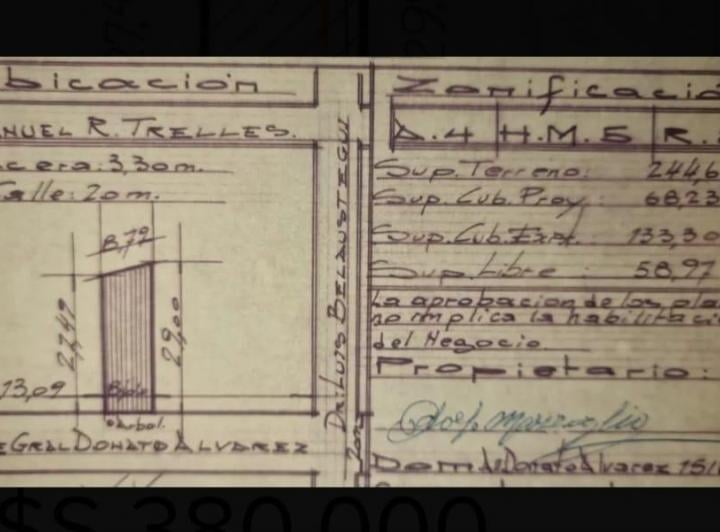 bicación
NUEL R. TRELLES.
cera: 3,30m.
alle: 20m.
8,79
29,00
13,09
Arbol.
GRAL DONATO ALVAREZ
DR. LUIS BELAUSTEGUI
20m
Zonificació
A.4 H.M.5 R.
Sup. Terreno: 244,6
Sup. Cub. Proy. 68,23
Sup. Cub. Exist. : 133,30
Sup. Libre : 58,97
La aprobacion de los pla
no implica la habilitaci
del Negocio
Propietario:
Dom Donato Alvarez
$S 380.000